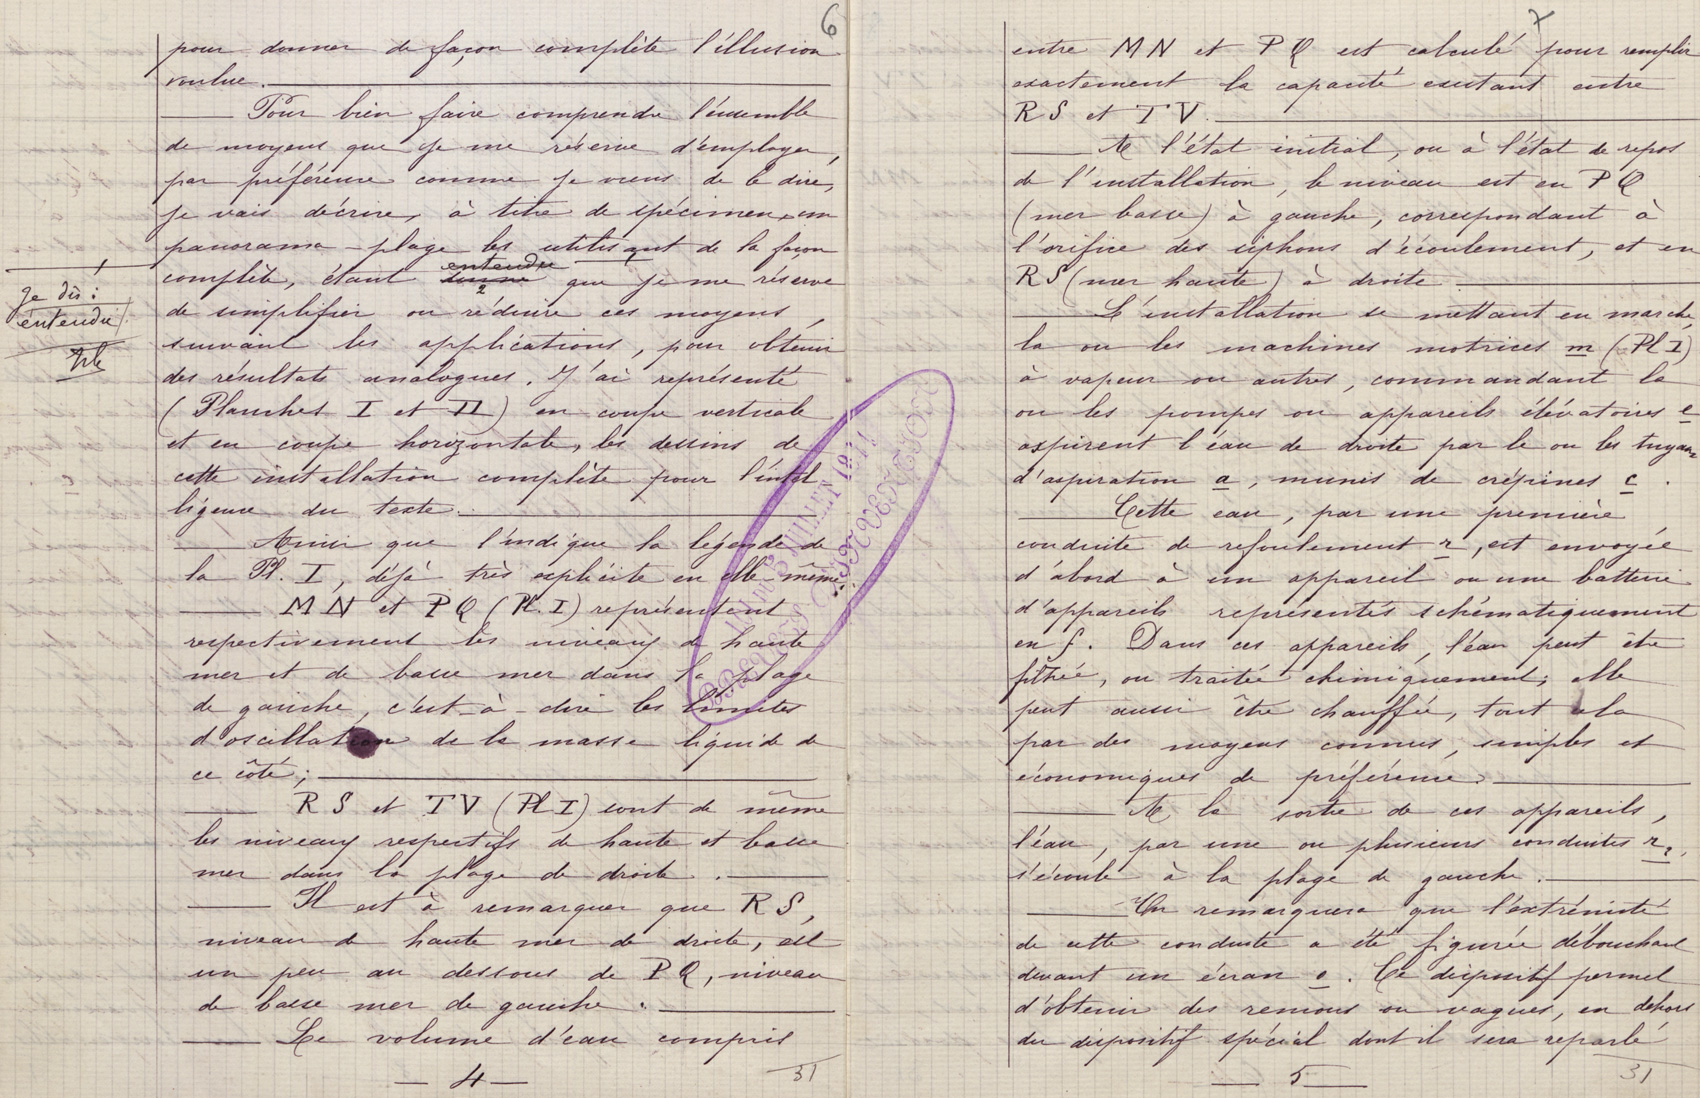 6
pour donner de façon complète l'illusion
voulue.
Pour bien faire comprendre l'ensemble
de moyens que je me réserve d'employer,
par préférence comme je viens de le dire,
je vais décrire, à titre de spécimen, un
panorama-plage les utilisant de la façon
complète, étant entendu que je me réserve
de simplifier ou réduire ces moyens,
suivant les applications, pour obtenir
des résultats analogues. J'ai représenté
(Planches I et II) en coupe verticale
et en coupe horizontale, les dessins de
cette installation complète pour l'intel
ligence du texte.
Ainsi que l'indique la légende de
la Pl. I, déjà très explicite en elle même:
MN et PQ (Pl. I) représentent
respectivement les niveaux de haute
mer et de basse mer dans la plage
de gauche, c'est-à-dire les limites
d'oscillation de la masse liquide de
ce côté;
RS et TV (Pl I) sont de même
les niveaux respectifs de haute et basse
mer dans la plage de droite.
Il est à remarquer que RS,
niveau de haute mer de droite, est
un peu au dessous de PQ, niveau
de basse mer de gauche.
Le volume d'eau compris
— 4 —
31
Je dis:
entendu
7
entre MN et PQ est calculé pour remplir
exactement la capacité existant entre
RS et TV.
A l'état initial, ou à l'état de repos
de l'installation, le niveau est en PQ
(mer basse) à gauche, correspondant à
l'orifice des siphons d'écoulement, et en
RS (mer haute) à droite.
L'installation se mettant en marche,
la ou les machines motrices m (Pl I)
à vapeur ou autres, commandant le
ou les pompes ou appareils élévatoires e
aspirent l'eau de droite par le ou les tuyaux
d'aspiration a, munis de crépines c.
Cette eau, par une première
conduite de refoulement r, est envoyée
d'abord à un appareil ou une batterie
d'appareils représentés schématiquement
en f. Dans ces appareils, l'eau peut être
filtrée, ou traitée chimiquement; elle
peut aussi être chauffée, tout cela
par des moyens connus, simples et
économiques de préférence.
A la sortie de ces appareils,
l'eau, par une ou plusieurs conduites r2,
s'écoule à la plage de gauche.
On remarquera que l'extrémité
de cette conduite a été figurée débouchant
devant un écran o. Ce dispositif permet
d'obtenir des remous ou vagues, en dehors
du dispositif spécial dont il sera reparlé
— 5 —
31